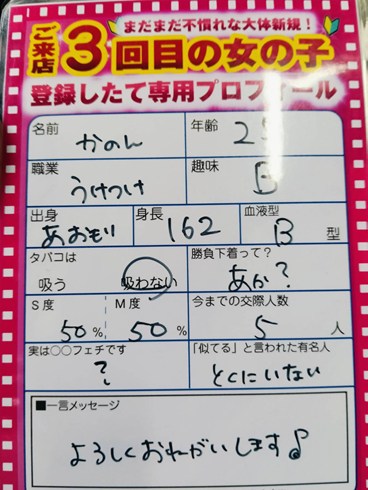 まだまだ不慣れな大体新規！
ご来店3回目の女の子
登録したて専用プロフィール
名前 かのん 年齢 2
職業 うけつけ 趣味 B
出身 あおもり 身長 162 血液型 B 型
タバコは 吸う 吸わない 勝負下着って？ あか？
S度 50% M度 50% 今までの交際人数 5 人
実は〇〇フェチです ? 「似てる」と言われた有名人 とくにいない
■一言メッセージ
よろしくおねがいします♪